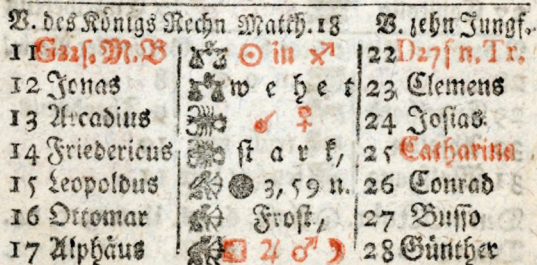 V. des Königs Rechn Matth. 18 V. zehn Jungf.
11 G22s. M. B ☉ in ♐ 22 D27s n. Tr.
12 Jonas wehet 23 Clemens
13 Arcadius ☌ ♀ 24 Josias.
14 Friedericus stark, 25 Catharina
15 Leopoldus ● 3, 59 n. 26 Conrad
16 Ottomar Frost, 27 Busso
17 Alphäus □ ♃ ♂ ☽ 28 Günther